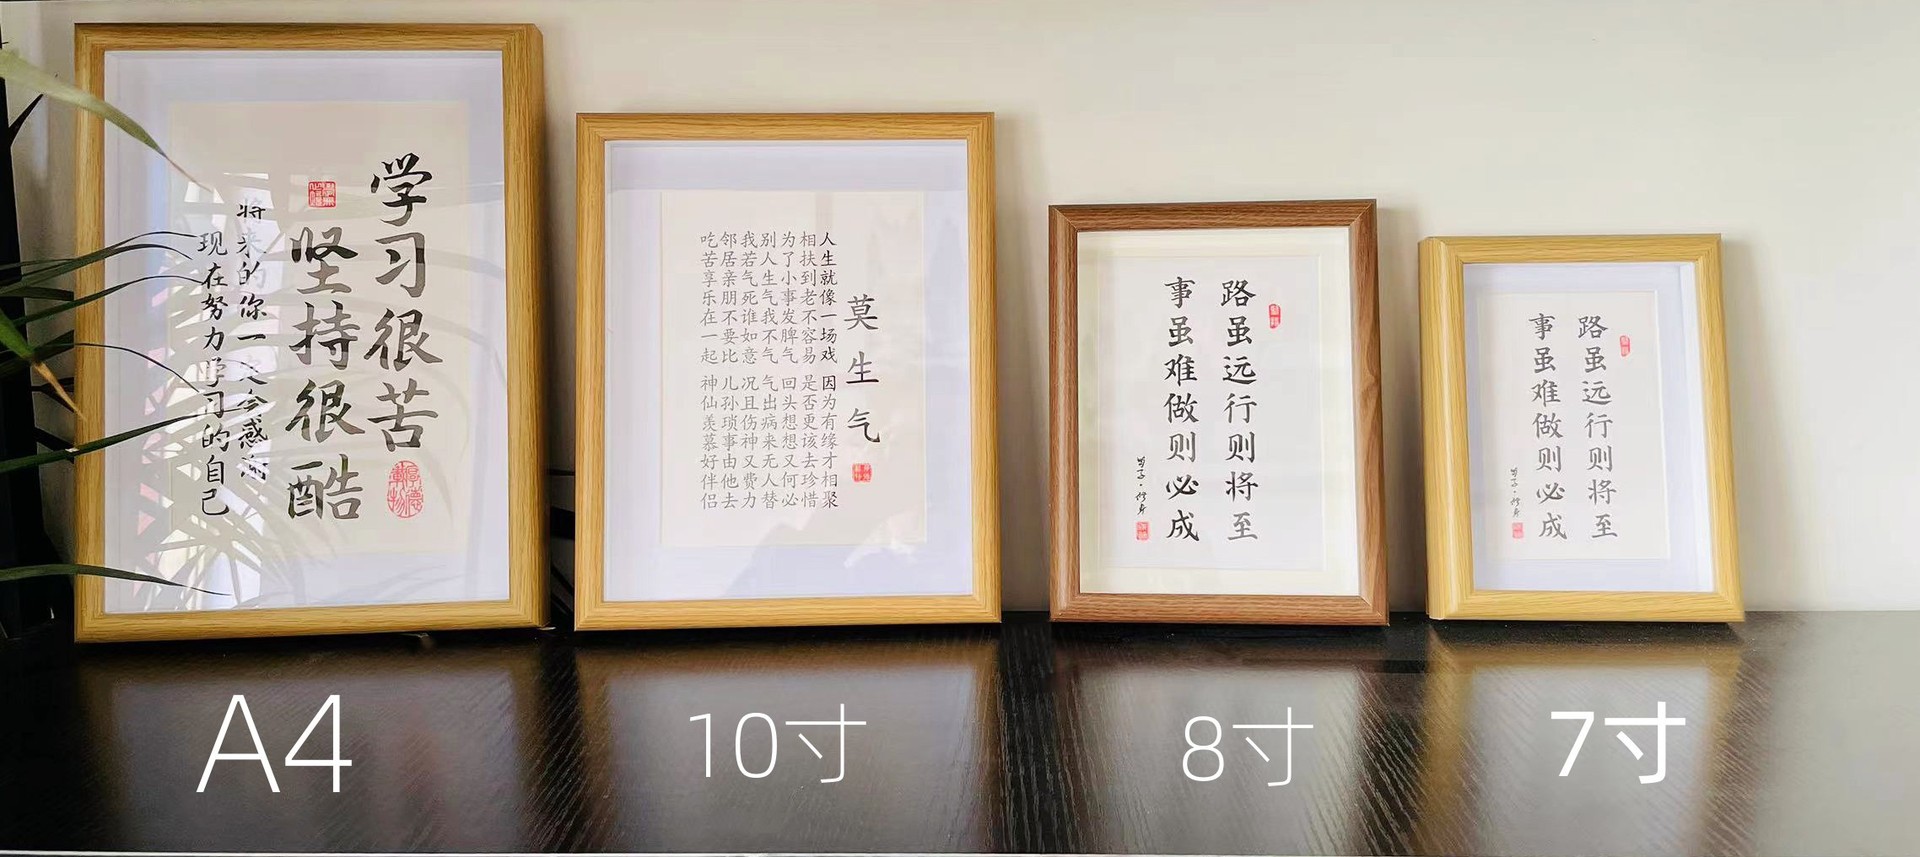 学习很苦
坚持很酷
将来的你一定会感谢
现在努力学习的自己
厚德载物
莫生气
人生就像一场戏 因为有缘才相聚
相扶到老不容易 是否更该去珍惜
为了小事发脾气 回头想想又何必
别人生气我不气 气出病来无人替
我若气死谁如意 况且伤神又费力
邻居亲朋不要比 儿孙琐事由他去
吃苦享乐在一起 神仙羡慕好伴侣
路虽远行则将至
事虽难做则必成
荀子·修身
路虽远行则将至
事虽难做则必成
荀子·修身
A4
10寸
8寸
7寸